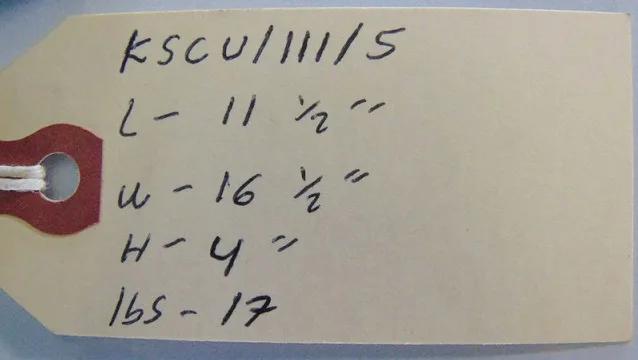 KSCU/111/5
L - 11 1/2"
W - 16 1/2"
H - 4"
lbs - 17